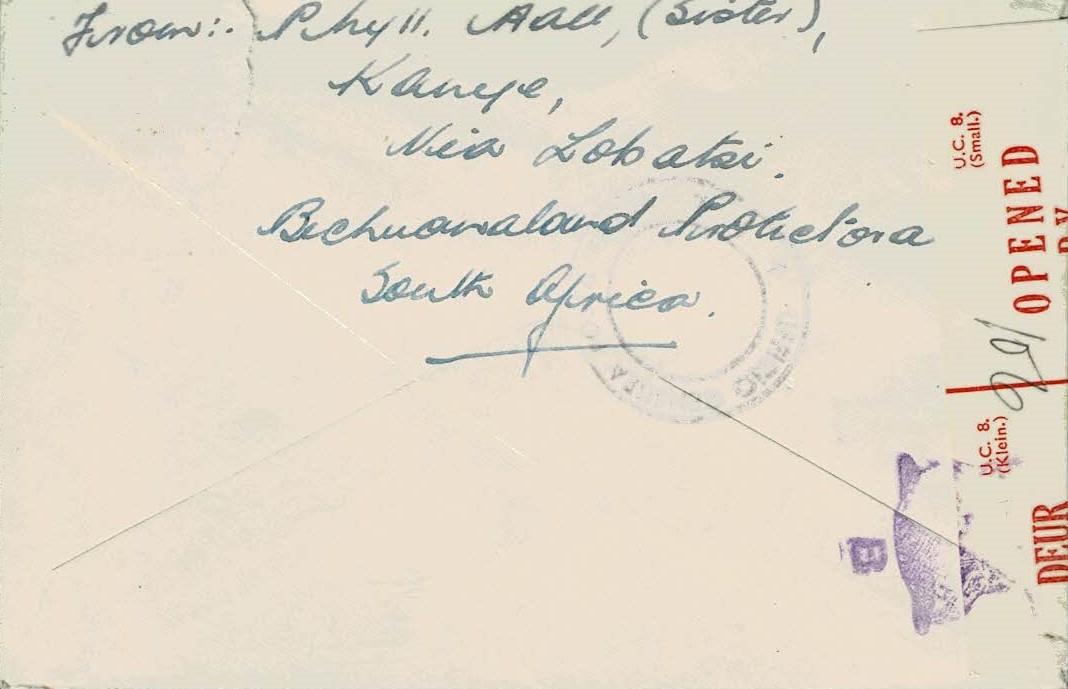 From:. Phyll. Aall, (Sister),
Kanye,
Via Lobatsi.
Bechuanaland Protectora
South Africa.
U.C. 8.
(Small.)
OPENED
BY
291
U.C. 8.
(Klein.)
DEUR
B